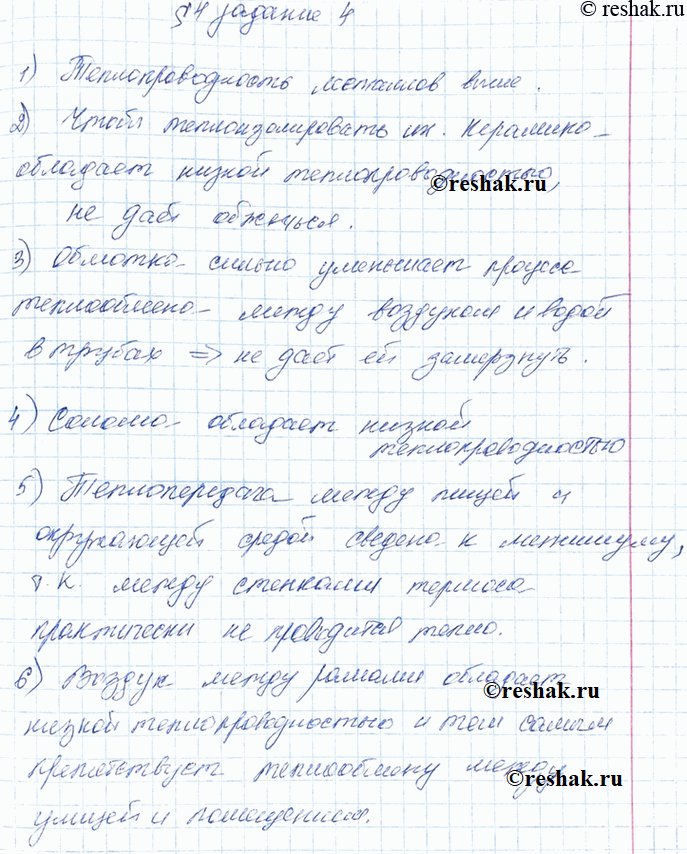 ©reshak.ru
§4 задание 4
1) Теплопроводность металлов выше.
2) Чтобы теплоизолировать их. Керамика
обладает низкой теплопроводностью,
©reshak.ru
не даёт обжечься.
3) Обмотка сильно уменьшает процесс
теплообмена между воздухом и водой
в трубах => не даёт ей замерзнуть.
©reshak.ru
4) Солома обладает низкой
теплопроводностью
5) Теплопередача между пищей и
окружающей средой сведена к минимуму,
т.к. между стенками термоса
практически не проводится тепло.
6) Воздух между рамами обладает
©reshak.ru
низкой теплопроводностью и тем самым
препятствует теплообмену между
©reshak.ru
улицей и помещением.